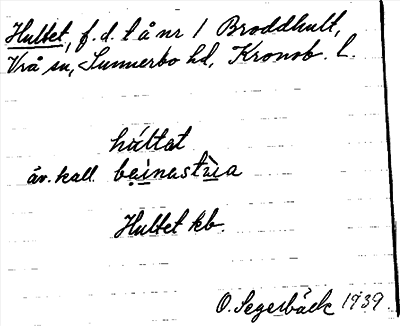 Hultet, f.d. t å nr 1 Broddhult,
Vrå sn, Sunnerbo hd, Kronob. l.
húltat
äv. kall. bәinastùa
Hultet kb.
O. Segerbäck 1939